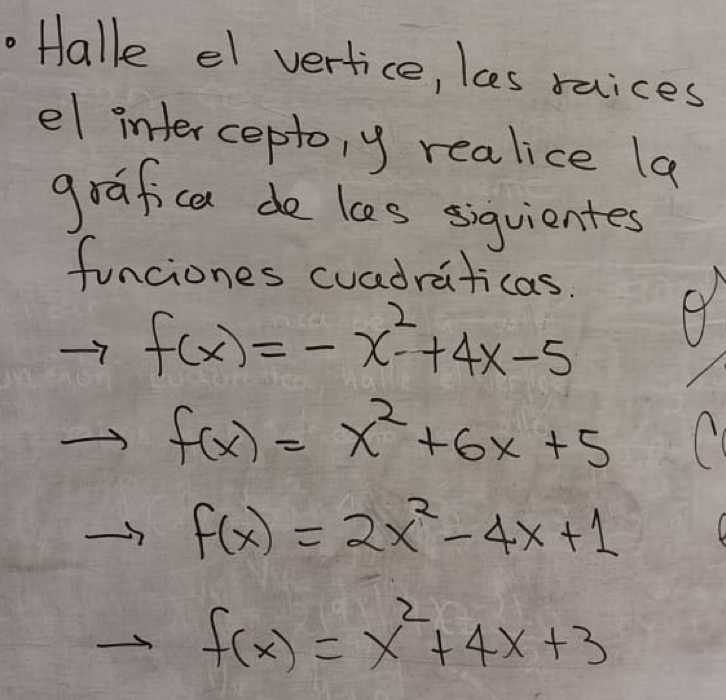 • Halle el vertice, las raices
el intercepto, y realice la
gráfica de las siguientes
funciones cuadráticas.
→ f(x) = - x² + 4x - 5
→ f(x) = x² + 6x + 5
→ f(x) = 2x² - 4x + 1
→ f(x) = x² + 4x + 3